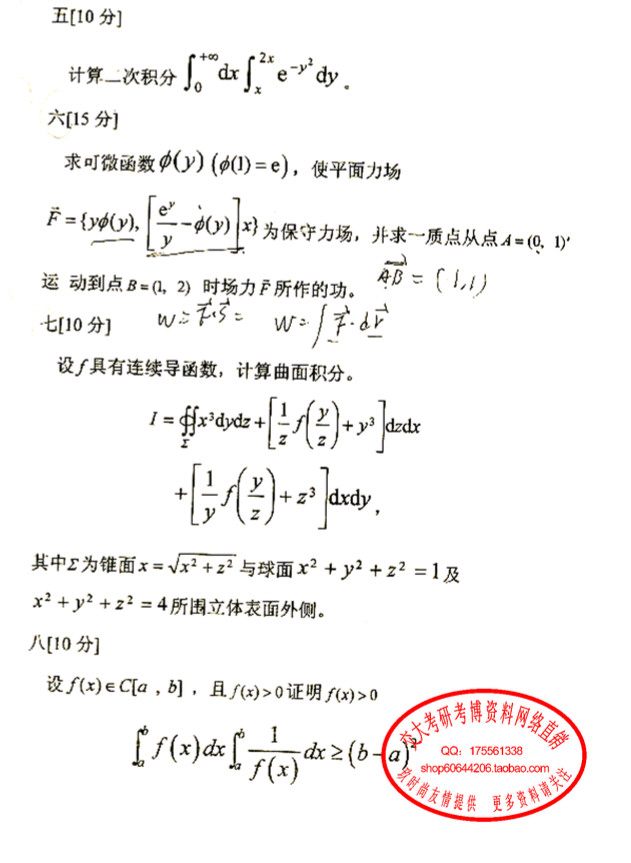 五[10 分]
计算二次积分 ∫₀^{+∞} dx ∫ₓ^{2x} e^{-y²} dy 。
六[15 分]
求可微函数 ϕ(y) (ϕ(1) = e) ，使平面力场
F⃗ = {yϕ(y), [e^y/y - ϕ(y)] x} 为保守力场，并求一质点从点 A = (0, 1)
运 动到点 B = (1, 2) 时场力 F⃗ 所作的功。 AB⃗ = (1,1)
W = F⃗·S⃗ = W = ∫ F⃗·dr⃗
七[10 分]
设 f 具有连续导函数，计算曲面积分。
I = ∯_Σ x³dydz + [1/z f(y/z) + y³] dzdx
+ [1/y f(y/z) + z³] dxdy ,
其中Σ为锥面 x = √(x² + z²) 与球面 x² + y² + z² = 1 及
x² + y² + z² = 4 所围立体表面外侧。
八[10 分]
设 f(x) ∈ C[a , b] ，且 f(x) > 0 证明 f(x) > 0
∫ₐᵇ f(x) dx ∫ₐᵇ 1/f(x) dx ≥ (b - a)²
交大考研考博资料网络直销
QQ：175561338
shop60644206.taobao.com
玖时尚友情提供 更多资料请关注